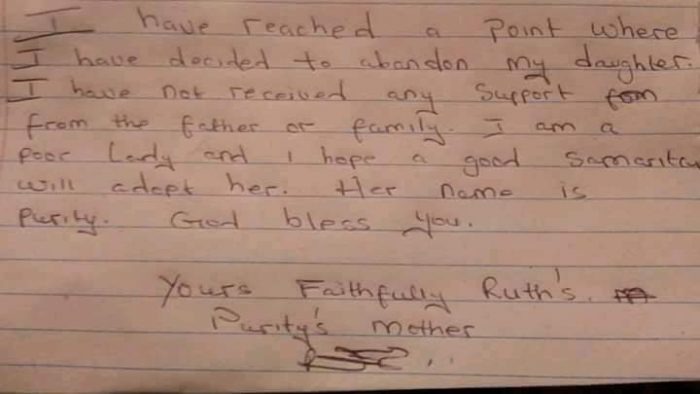 I have reached a point where
I have decided to abandon my daughter.
I have not received any support fom
from the father or family. I am a
poor Lady and i hope a good samaritan
will adopt her. Her name is
Purity. God bless you.
Yours Faithfully Ruth's.
Purity's mother